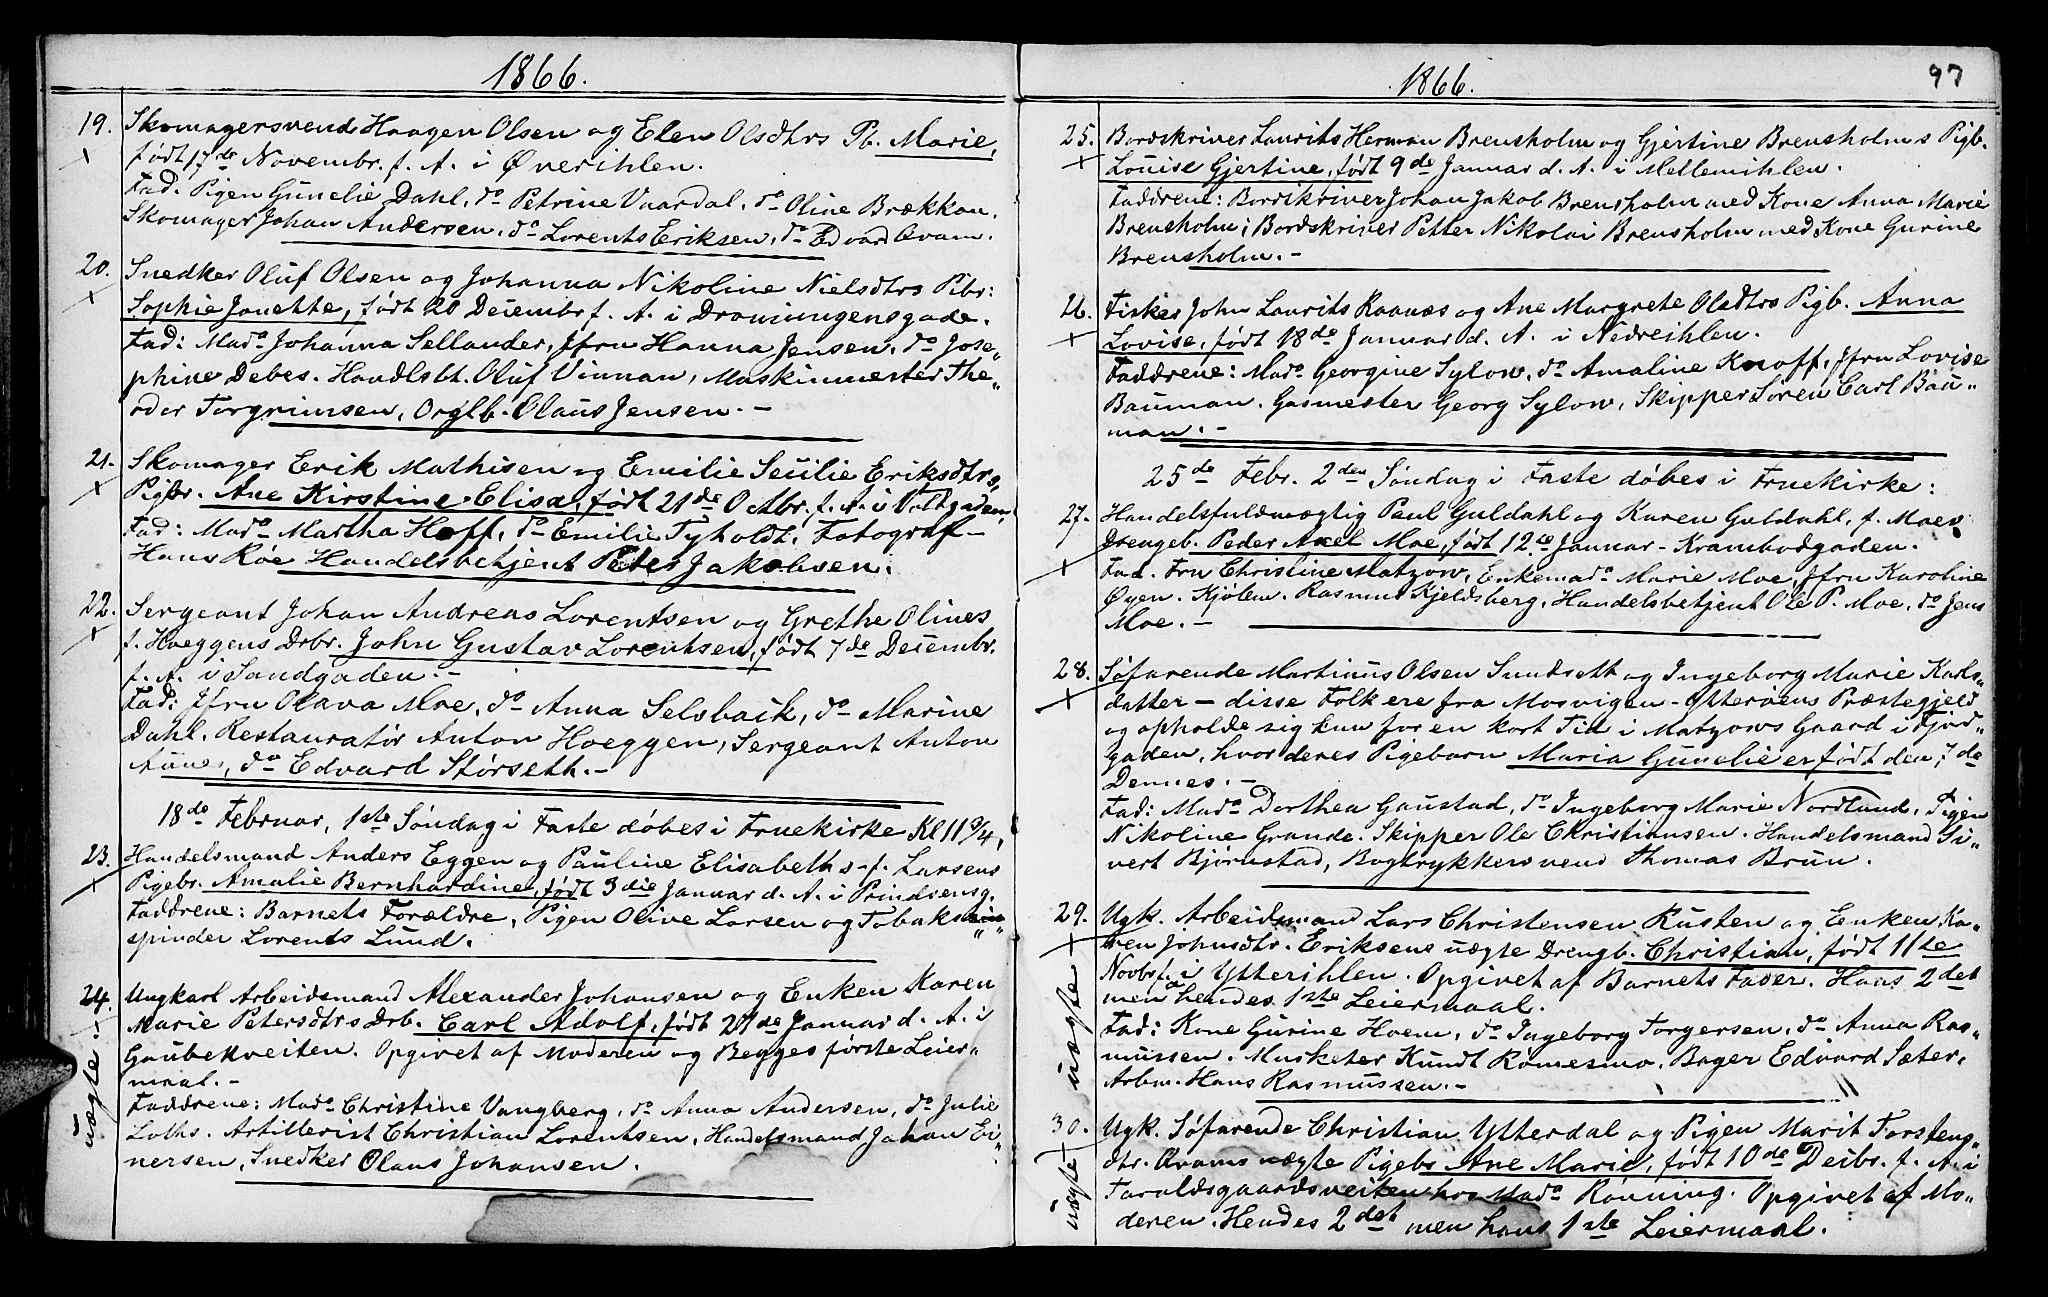 1866.
19. Skomagersvend Haagen Olsen og Elen Olsdtrs Pb. Marie,
født 17de Novembr. f. A. i Øverihlen.
Fad. Pigen Gunelie Dahl, do Petrine Vaardal, do Oline Brækkan.
Skomager Johan Andersen, do Lorents Eriksen, do Edvard Qvam.
20. Snedker Oluf Olsen og Johanna Nikoline Nielsdtrs Pibr:
Sophie Janette, født 20 Decembr f. A. i Dronningensgade.
Fad: Mado Johanna Sellander, Jfru Hanna Jensen, do Jose„
phine Debes. Handlsbt. Oluf Vinnan, Maskinmester The„
odor Torgrimsen, Orglb. Olaus Jensen. –
21. Skomager Erik Mathisen og Emilie Secilie Eriksdtrs
Pigbr. Ane Kirstine Elisa, født 21de Octbr. f. A. i Voldgaden,
Fad: Mado Martha Hoff, do Emilie Tyholdt, Fotograf
Hans Røe Handelsbetjent Peter Jakobsen.
22. Sergeant Johan Andreas Lorentsen og Grethe Olines
f. Hoeggens Drbr. John Gustav Lorentsen, født 7de Decembr.
f. A. i Sandgaden. –
Fad: Jfru Olava Moe, do Anna Selsback, do Marine
Dahl. Restauratør Anton Hoeggen, Sergeant Anton
Aunes, do Edvard Størseth. –
18de Februar, 1ste Søndag i Faste døbes i Fruekirke Kl 11 3/4,
23. Handelsmand Anders Eggen og Pauline Elisabeths f. Larsens
Pigebr. Amalie Bernhardine, født 3die Januar d. A. i Prindsensg.
Faddrene: Barnets Forældre, Pigen Olive Larsen og Tobak„
spinder Lorents Lund.
24. Ungkarl Arbeidsmand Alexander Johansen og Enken Karen
Marie Petersdtrs Drb. Carl Adolf, født 27de Januar d. A. i
Gaubekveiten. Opgivet af Moderen og Begges første Leier„
maal. –
uægte.
Faddrene: Mado Christine Vangberg, do Anna Andersen, do Julie
Loths. Artillerist Christian Lorentsen, Handelsmand Johan Ei„
nersen, Snedker Olaus Johansen.
1866. 97
25. Bordskriver Laurits Herman Brensholm og Gjertine Brensholms Pigb.
Louise Gjertine, født 9de Januar d. A. i Mellemihlen.
Faddrene: Bordskriver Johan Jakob Brensholm med Kone Anna Marie
Brensholm; Bordskriver Petter Nikolai Brensholm med Kone Gurine
Brensholm. –
26. Fisker John Laurits Raanæs og Ane Margrete Olsdtrs Pigb. Anna
Lovise, født 18de Januar d. A. i Nedreihlen.
Faddrene: Mado Georgine Sylow, do Amaline Knoff, Jfru Lovise
Bauman. Gasmester Georg Sylow, Skipper Søren Carl Bau„
man. –
25de Febr. 2den Søndag i Faste døbes i Fruekirke:
27. Handelsfuldmægtig Paul Guldahl og Karen Guldahl, f. Moes
Drengeb. Peder Axel Moe, født 12te Januar – Krambodgaden.
Fad. Fru Christine Matzow, Enkemado Marie Moe, Jfru Karoline
Øyen. Kjøbm. Rasmus Kjeldsberg, Handelsbetjent Ole P. Moe, do Jens
Moe. –
28. Søfarende Martinus Olsen Sundseth og Ingeborg Marie Karls„
datter – disse Folk ere fra Mosvigen – Ytterøens Præstegjeld
og opholde sig kun for en kort Tid i Matzows Gaard i Fjord„
gaden, hvor deres Pigebarn Maria Gunelie er født den 7de
Dennes. –
Fad: Mado Dorthea Gaustad, do Ingeborg Marie Nordlund, Pigen
Nikoline Grande. Skipper Ole Christiansen. Handelsmand Si„
vert Bjørnstad, Bogtrykkersvend Thomas Brun.
29. Ugk. Arbeidsmand Lars Christensen Rusten og Enken Ka„
ren Johnsdtr. Eriksens uægte Drengb. Christian, født 11te
Novbr f. A. i Ytterihlen. Opgivet af Barnets Fader. Hans 2det
men hendes 1ste Leiermaal.
uægte
Fad: Kone Gurine Hoem, do Ingeborg Torgersen, do Anna Ras„
mussen. Musketer Kundt Romesmo, Bager Edvard Sæter,
Arbm. Hans Rasmussen. –
30. Ugk. Søfarende Christian Ytterdal og Pigen Marit Torstens„
dtr. Qvams uægte Pigebr Ane Marie, født 10de Decbr. f. A. i
Taraldsgaardsveiten hos Mado Rønning. Opgivet af Mo„
deren. Hendes 2det men hans 1ste Leiermaal.
uægte